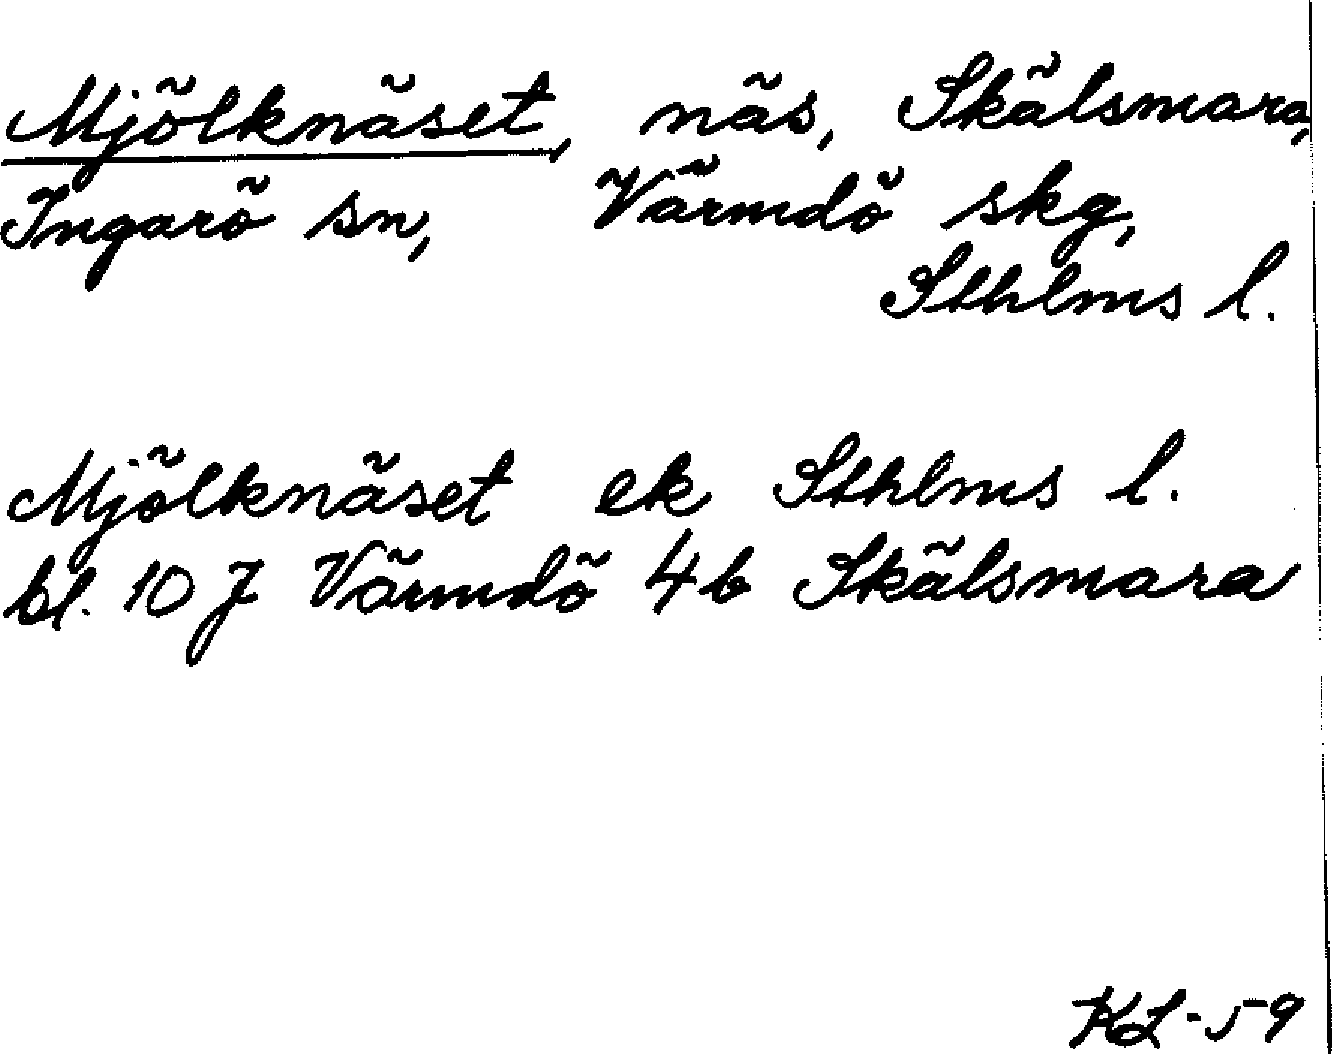 Mjölknäset, näs, Skälsmara,
Ingarö sn, Värmdö skg,
Sthlms l.
Mjölknäset ek Sthlms l.
bl. 10 J Värmdö 4b Skälsmara
KL-59